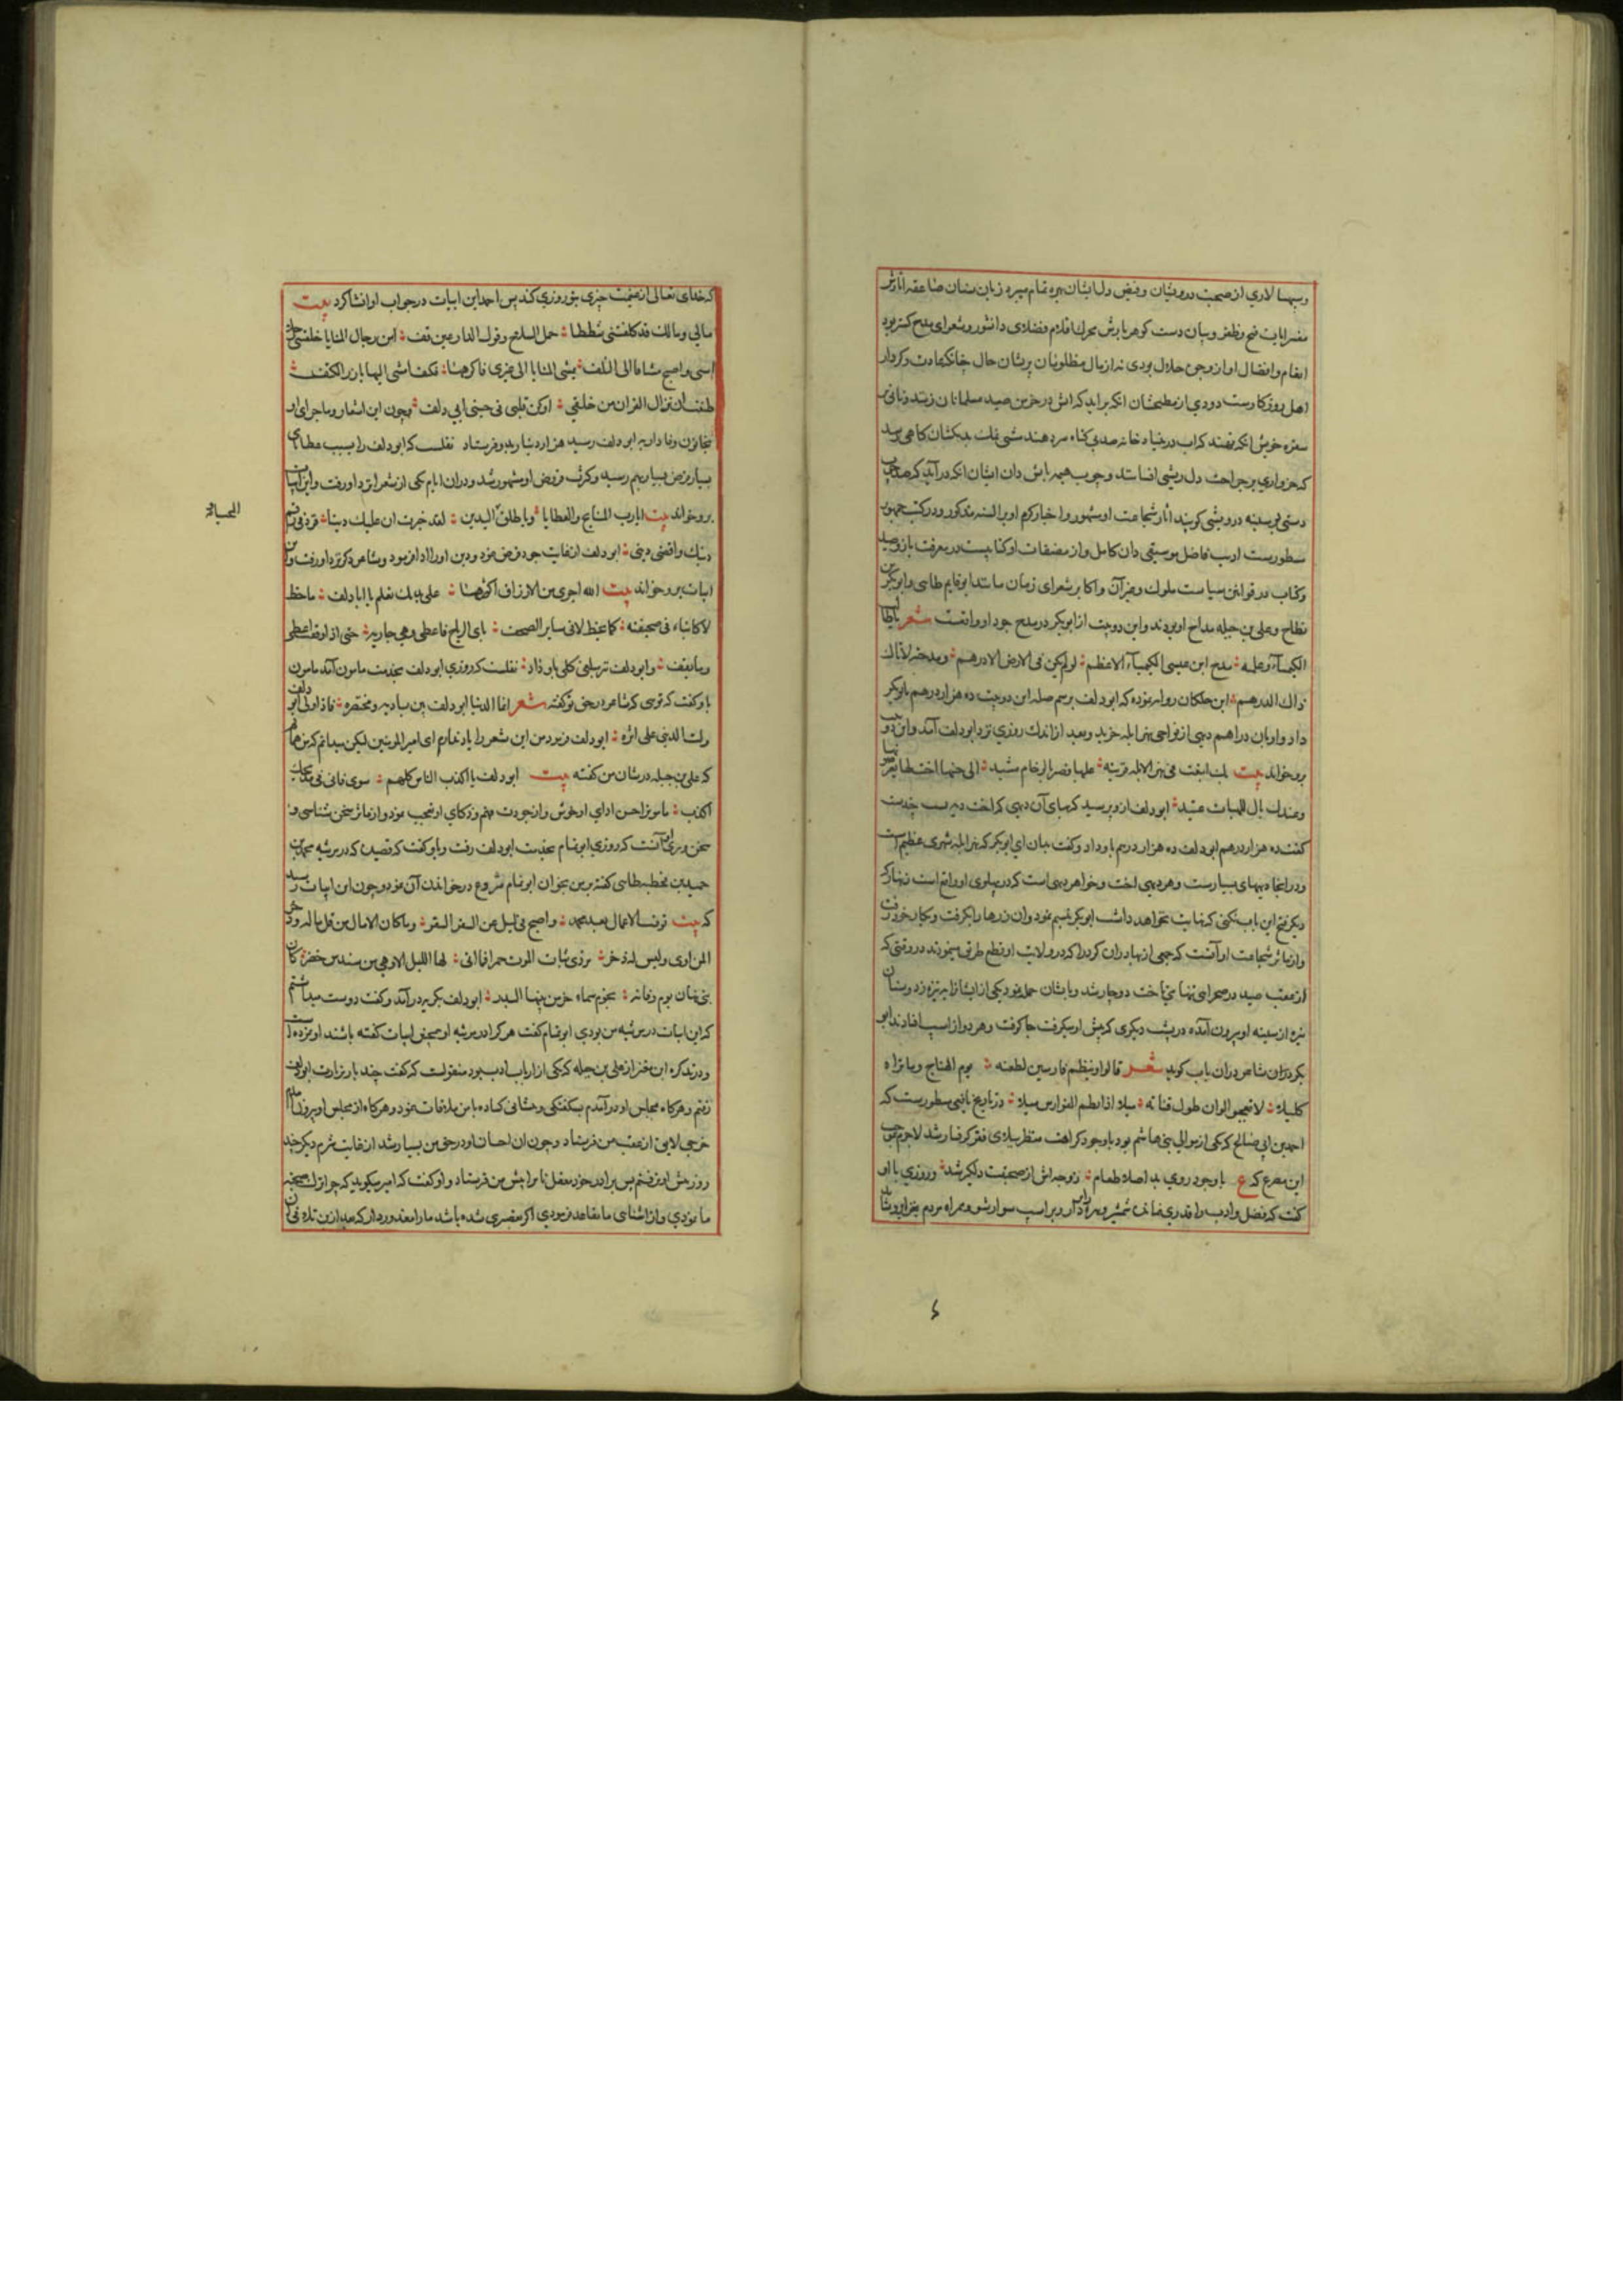 وسپهسالاری از صحبت درویشان وفیض دل ایشان بهره تمام میبرد زبان سنان صاعقه اثارش
مفسر ایات فتح وظفر وبیان دست کوهر بارش محرک اقلام فضلای دانشور وشعرای مدح کستر بود
انعام وافضال او از وجوه حلال بودی نه از مال مظلومان پریشان حال چنانکه عادت وکردار
اهل روزکارست دودی از مطبخشان انکه براید که اتش در خرمن صید مسلمانان زنند ونانی بر
سفره خویش انکه نهند که اب در بنیاد خانه صد بی کناه سر دهند شبی
که جو آری بر جراحت دل ریشی
دستی بر سینه درویشی کوبند اثار شجاعت او مشهور واخبار کرم او بر السنه مذکور ودر کتب جمهور
مسطورست ادیب فاضل موسیقی دان کامل واز مصنفات او کتابیست در معرفت باز وصید
وکتاب در قوانین سیاست ملوک وغیر آن واکابر شعرای زمان مانند ابو تمام طایی وابو بکر بن
نطاح وعلی بن جبله مداح او بودند واین دو بیت از ابو بکر در مدح جود او واقعست شعر یا طالبا
الکیمیآء وعلمه : مدح ابن عیسی الکیمیآء الاعظم : لو لم یکن فی الارض الا درهم : ومدحته لاتاک
ذاک الدرهم : ابن خلکان روایه نموده که ابو دلف برسم صله این دو بیت ده هزار درهم بابو بکر
داد واو بان دراهم دیهی از نواحی نهر ابله خرید وبعد از اندک روزی نزد ابو دلف آمد واین دو بیت
برو خواند بیت بک ابتعت فی نهر الابله قریة : علیها قصیر بالرخام مشید : الی جنبها اخت لها یعرضونها
وعندک مال للهبات عتید : ابو دلف ازو پرسید که بهای آن دیهی که اخت دیه تست چندست
کفت ده هزار درهم ابو دلف ده هزار درهم باو داد وکفت بدان ای ابو بکر که نهر ابله نهری عظیم است
ودر انجا دیههای بسیارست وهر دیهی اخت وخواهر دیهی است که در پهلوی او واقع است زنهار که
دیکر فتح این باب نکنی که نهایت نخواهد داشت ابو بکر تبسم نمود وان زرها را بکرفت وبکار خود رفت
واز مآثر شجاعت او آنست که جمعی از بهادران کرد را که در ولایت او قطع طریق مینمودند در وقتی که
از عقب صید در صحرایی تنها می تاخت دوچار شد وبایشان حمله نمود یکی از ایشانرا بنیزه زد وسنان
نیزه از سینه او بیرون آمده در پشت دیکری که پیش او میکرفت جا کرفت وهر دو از اسب افتادند ابو
بکر دران شاعر دران باب کوید شعر قالوا وینظم فارسین بطعنه : یوم الهیاج وما تراه
کلیلا : لا تعجبوا لو ان طول قناته : میلا اذا نظم الفوارس میلا : در تاریخ یافعی مسطورست که
احمد بن ابی صالح که یکی از موالی بنی هاشم بود باوجود کراهت منظر ببلای فقر کرفتار شد لاجرم بموجب
این مصرع که ع باوجود روی بد اصلا طعام : زوجه اش از صحبت دلکیر شد : وروزی با او
کفت که فضل وادب را قدری نمانده شمشیر ونیزه بردار وبر اسب سوار شو وهمراه مردم بغزا برو شاید
که خدای تعالی از غنیمت چیزی بتو روزی کند پس احمد این ابیات در جواب او انشا کرد بیت
مالی ومالک قد کلفتنی شططا : حمل السلاح وقول الدارعین قف : امن رجال المنایا خلتنی رجلا
امسی واصبح مشتاقا الی التلف : تمشی المنایا الی غیری فاکرهها : فکیف امشی الیها بارز الکتف :
ظننت ان نزال القرن من خلقی : او کان قلبی فی جنبی ابی دلف : چون این اشعار وماجرای او
بخاتون وفا دار به ابو دلف رسید هزار دینار بدو فرستاد نقلست که ابو دلف را بسبب عطاهای
بسیار قرض بسیار بهم رسید وکرم وقرض او مشهور شد ودران ایام یکی از شعرا نزد او رفت واین ابیات
برو خواند بیت ایا رب المنایح والعطایا : ویا طلق الیدین : لقد خبرت ان علیک دینا : فزد فی رقم
دینک واقض دینی : ابو دلف از غایت جود قرض نمود ودین او را ادا فرمود وشاعر دیکر نزد او رفت واین
ابیات برو خواند بیت الله اجری من الارزاق اکثرها : علی یدیک تعلم یا ابا دلف : ما خط
لا کاتباه فی صحیفته : کما یخط لا فی سایر الصحف : باری الریاح فاعطی وهی جاریه : حتی اذا وقفت اعطی
وما یقف : وابو دلف نیز مبلغی کلی باو داد : نقلست که روزی ابو دلف بخدمت مامون آمد مامون
باو کفت که توئی که شاعر در حق تو کفته شعر انما الدنیا ابو دلف بین بادیه ومحتضره : فاذا ولی ابو دلف
ولت الدنیا علی اثره : ابو دلف فرمود من این شعر را یاد ندارم ای امیر المومنین لیکن میدانم که من همانم
که علی بن جبله در شان من کفته بیت ابو دلف یا اکذب الناس کلهم : سوی فانی فی مدیحک
اکذب : مامون از حسن ادای او خوش واز جودت فهم وذکای او تعجب نمود واز مآثر سخن شناسی و
سخن وری او آنست که روزی ابو تمام بخدمت ابو دلف رفت وباو کفت که قصیده که در مرثیه محمد بن
حمید بن قحطبه طاسی کفته بر من بخوان ابو تمام شروع در خواندن آن نمود وچون این ابیات رسید
که بیت توفیت الآمال بعد محمد : واصبح فی شغل عن السفر السفر : وما کان الا مال من قل ماله وذخرا
لمن امسی ولیس له ذخر : تردی ثیاب الموت حمرا فما اتی : لها اللیل الا وهی من سندس خضر : کان
بنی نبهان یوم وفاته : نجوم سماء خر من بینها البدر : ابو دلف بکریه درآمد وکفت دوست میداشتم
که این ابیات در مرثیه من بودی ابو تمام کفت هر کرا در مرثیه او همچنین ابیات کفته باشند او نمرده است
ودر تذکره ابن معتز از علی بن جبله که یکی از ارباب ادب بود منقولست که کفت چند بار بزیارت ابو دلف
رفتم وهرکاه بمجلس او درآمدم بشکفتکی وبشاشت کشاده با من ملاقات نمود وهرکاه از مجلس او بیرون آمدم
خرجی لایق از عقب من فرستاد وچون ان احسان او در حق من بسیار شد از غایت شرم دیکر چند
روز پیش او نرفتم پس برادر خود معقل نام را پیش من فرستاد واو کفت که امیر میکوید که چرا ترک صحبت
ما نمودی واز اشنائی ما تقاعد فرمودی اکر تقصیری شده باشد ما را معذور دار که بعد ازین تلافی آن
المحیاة